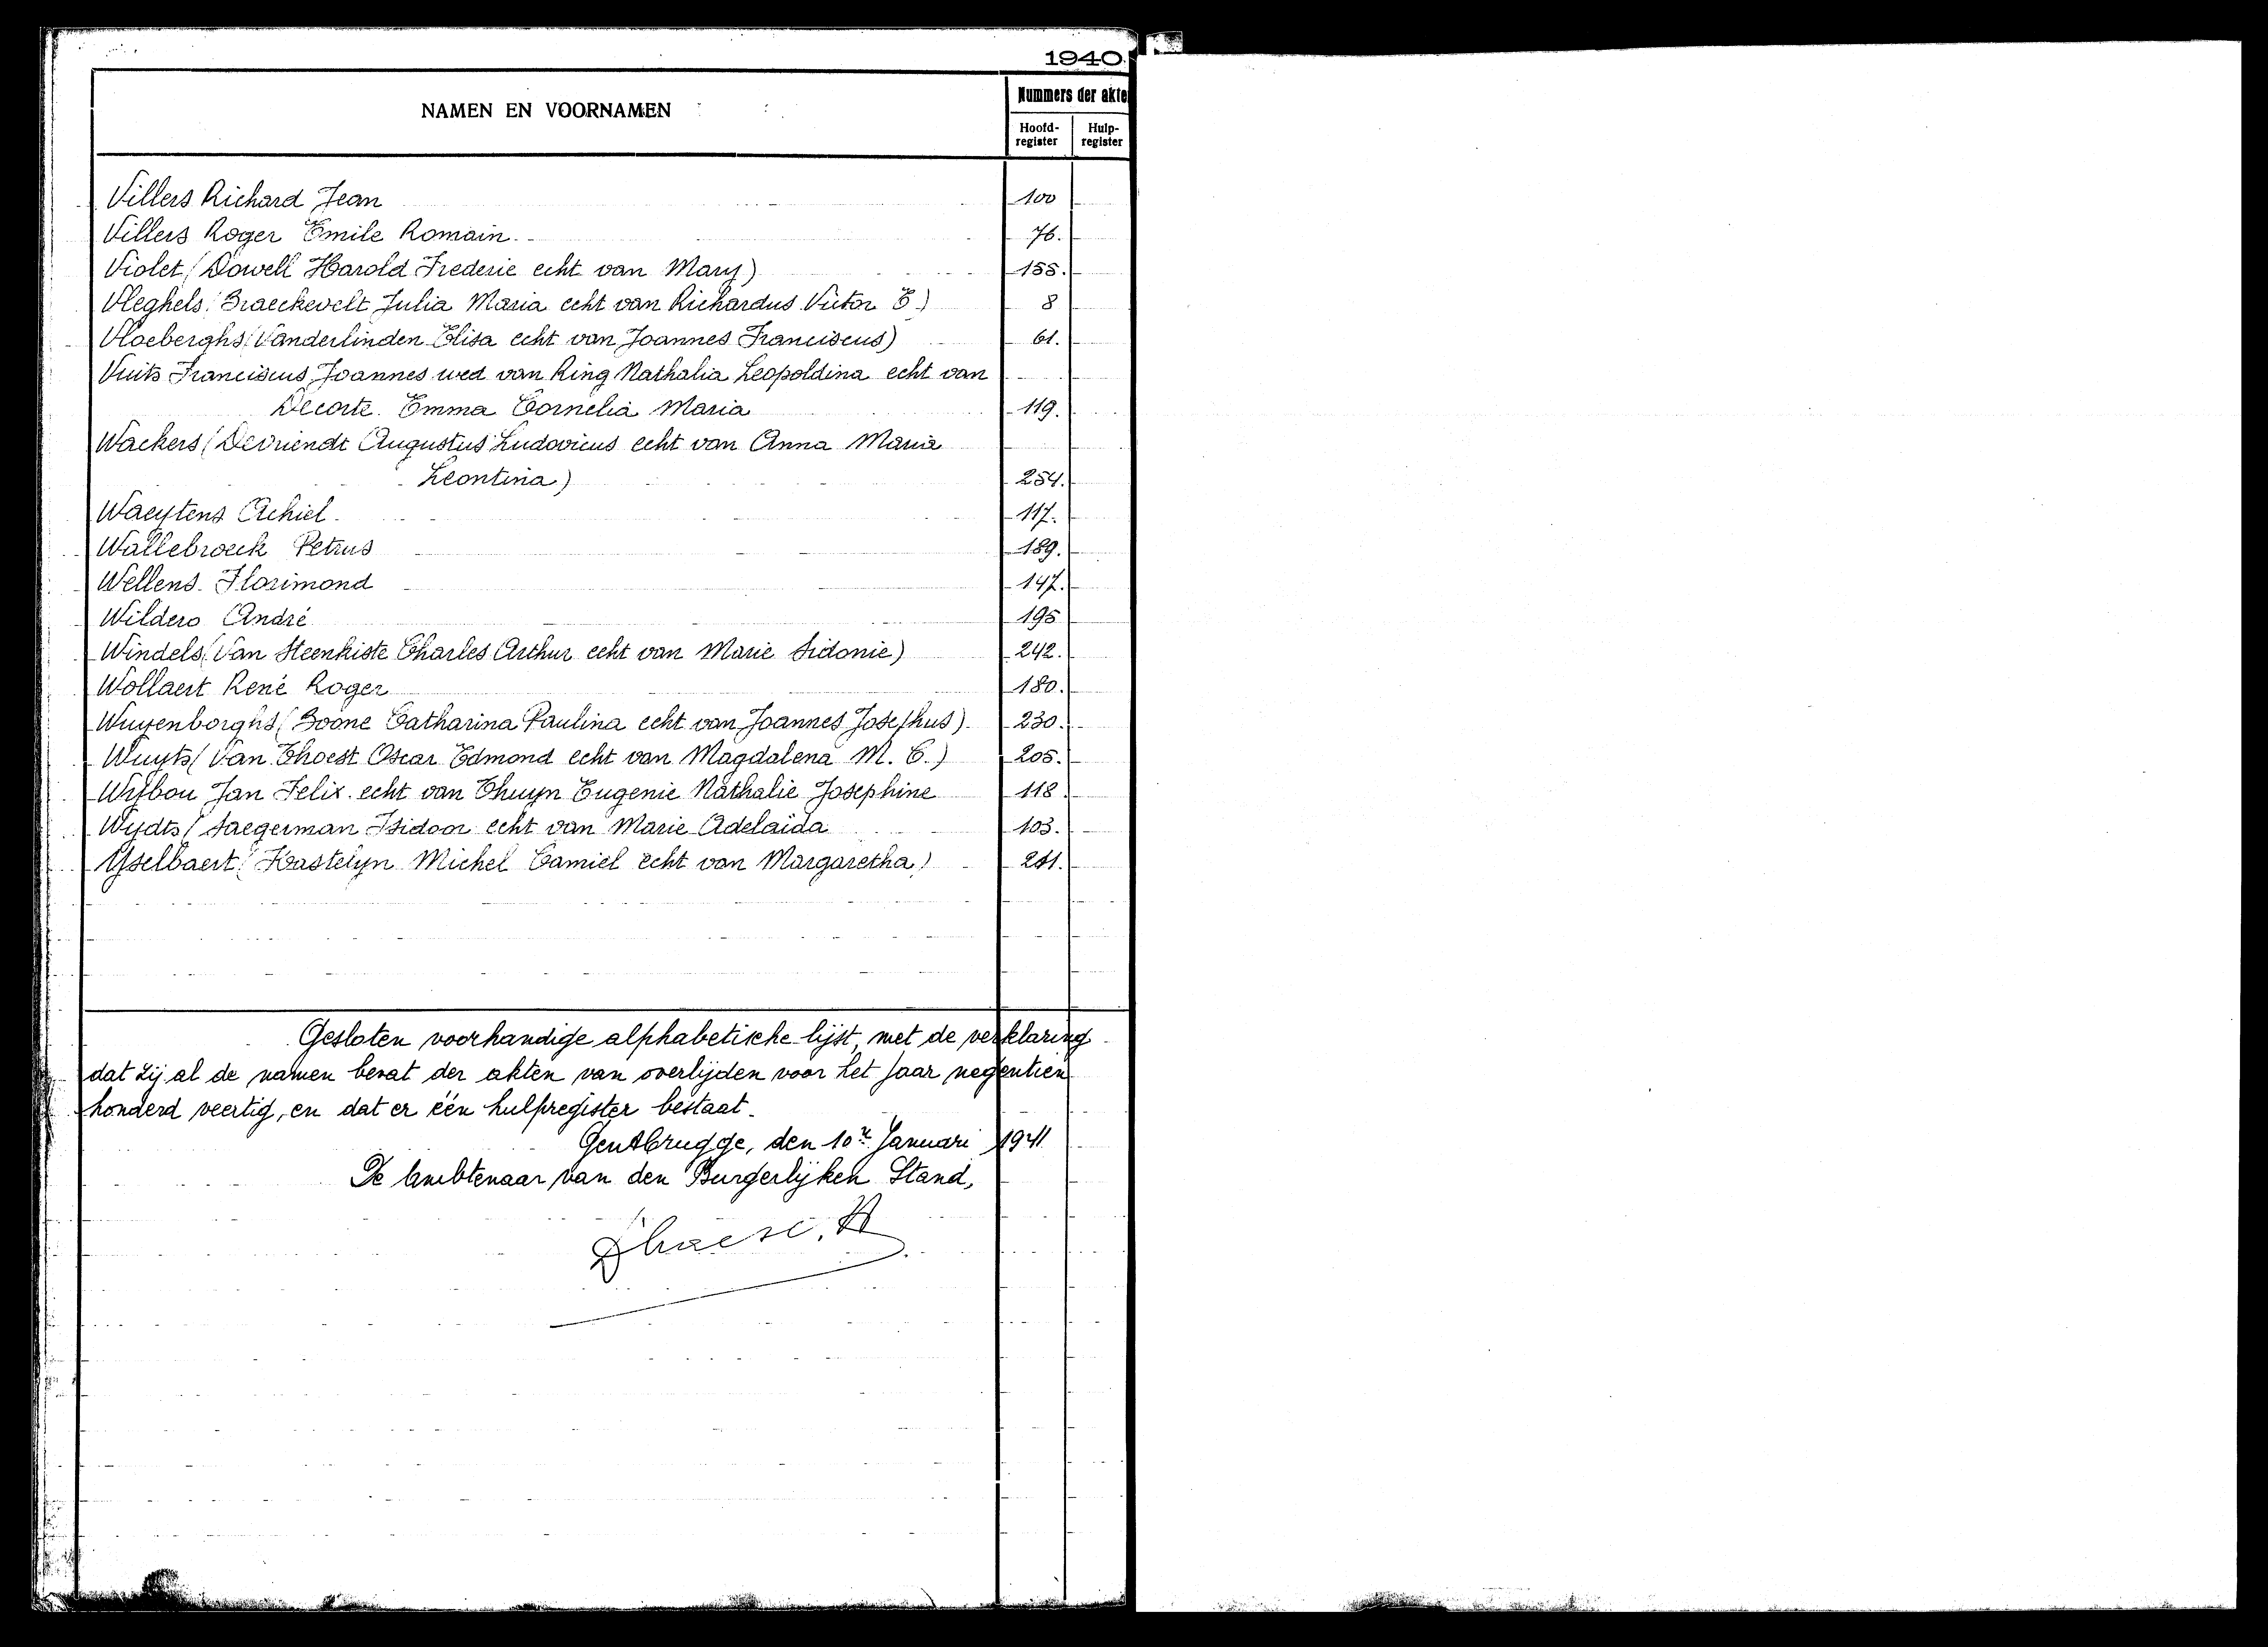 1940
NAMEN EN VOORNAMEN
Nummers der akte
Hoofd-register Hulp-register
Villers Richard Jean 100
Villers Roger Emile Romain. 76.
Violet (Dowell Harold Frederic echt van Mary) 155.
Vleghels (Braeckevelt Julia Maria echt van Richardus Victor E.) 8
Vloeberghs (Vanderlinden Elisa echt van Joannes Franciscus) 61.
Vuits Franciscus Joannes wed van Ring Nathalia Leopoldina echt van
Decorte Emma Cornelia Maria 119.
Wackers (Devriendt Augustus Ludovicus echt van Anna Maria
Leontina) 254.
Waeytens Achiel 117.
Wallebroeck Petrus 189.
Wellens Florimond 147.
Wildero André 195
Windels (Van Steenkiste Charles Arthur echt van Marie Sidonie) 242.
Wollaert René Roger 180.
Wuyenborghs (Boone Catharina Paulina echt van Joannes Josephus) 230.
Wuyts (Van Thoest Oscar Edmond echt van Magdalena M. C.) 205.
Wybou Jan Felix echt van Thuyn Eugenie Nathalie Josephine 118.
Wydts (Saegerman Isidoor echt van Marie Adelaida 103.
Yselbaert (Kastelyn Michel Camiel echt van Margaretha)
Gesloten voorhandige alphabetische lijst, met de verklaring
dat zij al de namen bevat der akten van overlijden voor het jaar negentien
honderd veertig, en dat er één hulpregister bestaat.
Gentbrugge, den 10n Januari 1941
De Ambtenaar van den Burgerlijken Stand,